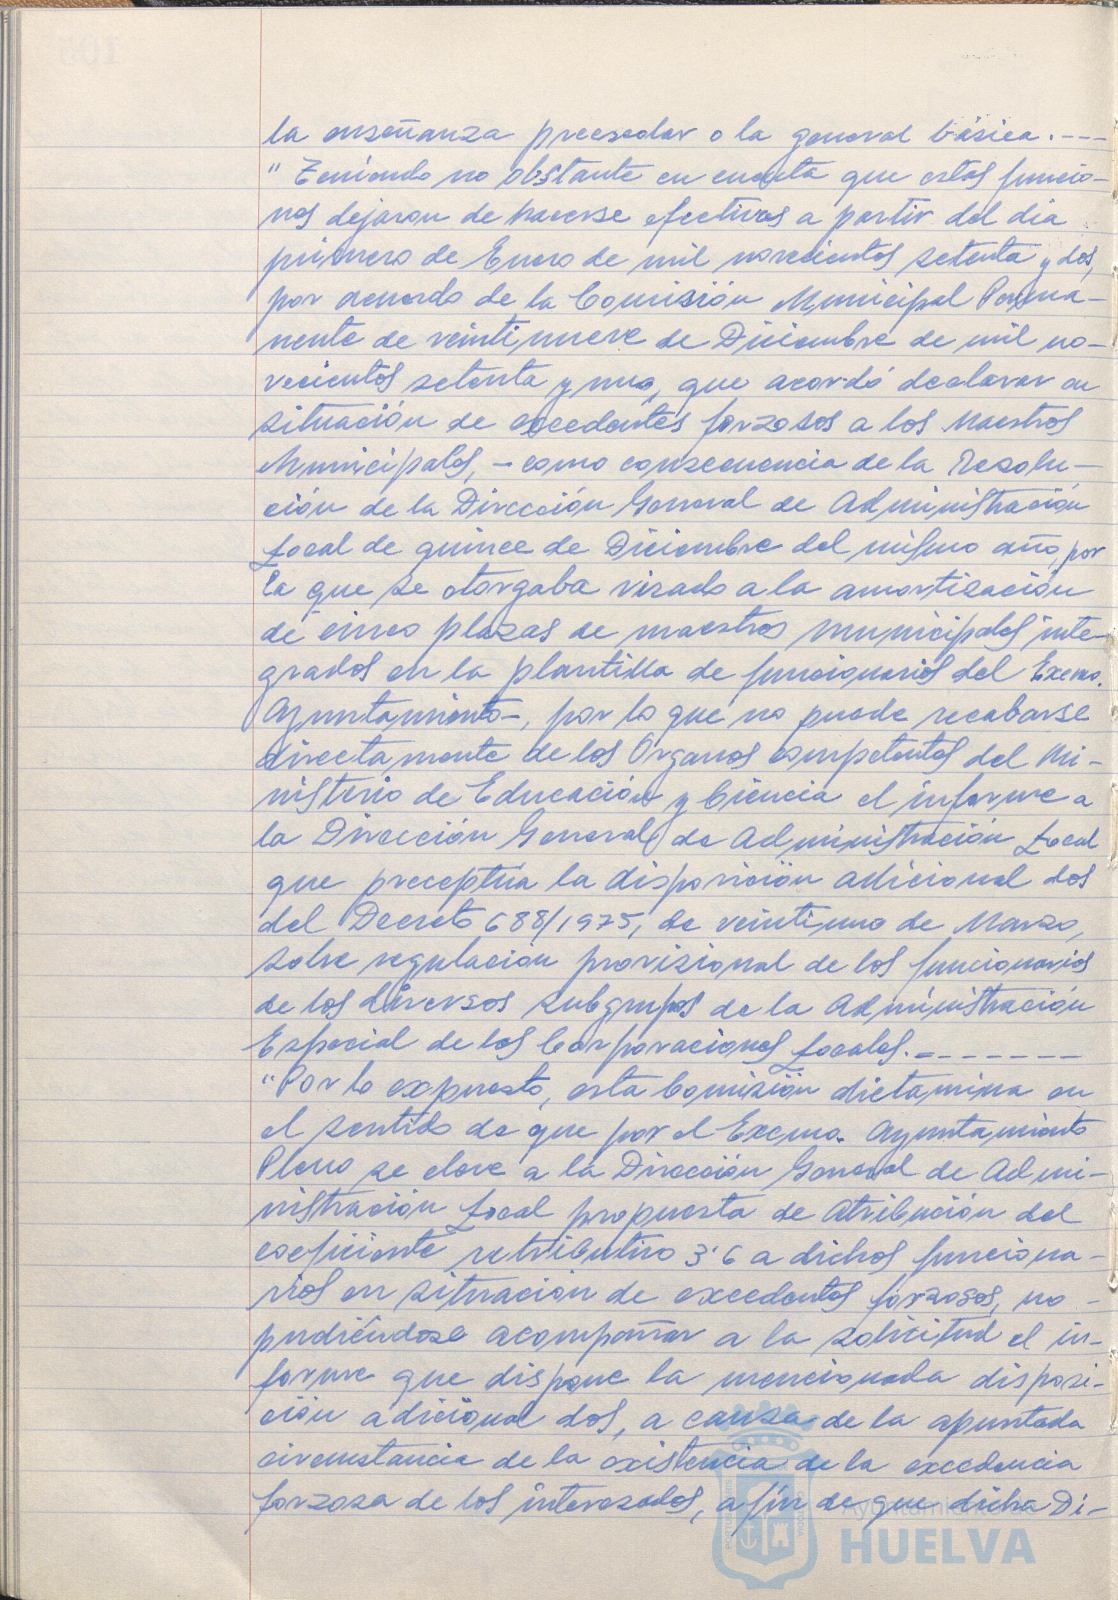 la enseñanza preescolar o la general básica.---
" Teniendo no obstante en cuenta que estas funcio-
nes dejaron de hacerse efectivas a partir del día
primero de Enero de mil novecientos setenta y dos,
por acuerdo de la Comisión Municipal Perma-
nente de veintinueve de Diciembre de mil no-
vecientos setenta y uno, que acordó declarar en
situación de excedentes forzosos a los Maestros
Municipales, - como consecuencia de la Resolu-
ción de la Dirección General de Administración
Local de quince de Diciembre del mismo año, por
la que se otorgaba visado a la amortización
de cinco plazas de maestros municipales inte-
grados en la plantilla de funcionarios del Excmo.
Ayuntamiento-, por lo que no puede recabarse
directamente de los Organos competentes del Mi-
nisterio de Educación y Ciencia el informe a
la Dirección General de Administración Local
que preceptúa la disposición adicional dos
del Decreto 688/1975, de veintiuno de Marzo,
sobre regulación provisional de los funcionarios
de los diversos subgrupos de la Administración
Especial de las Corporaciones Locales.-------
"Por lo expuesto, esta Comisión dictamina en
el sentido de que por el Excmo. Ayuntamiento
Pleno se eleve a la Dirección General de Admi-
nistración Local propuesta de atribución del
coeficiente retributivo 3'6 a dichos funciona-
rios en situación de excedentes forzosos, no -
pudiéndose acompañar a la solicitud el in-
forme que dispone la mencionada disposi-
ción adicional dos, a causa de la apuntada
circunstancia de la existencia de la excedencia
forzosa de los interesados, a fin de que dicha Di-
Ayuntamiento de
HUELVA